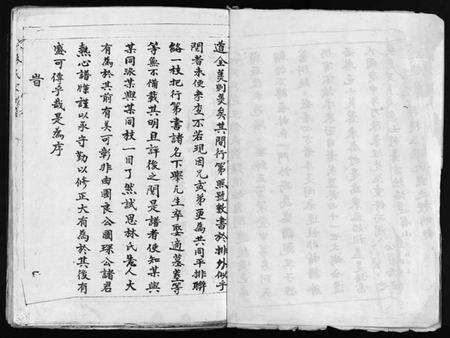 道金美則美矣其間行第照號數書於排外似乎
閱者未便考查不若現因兄或弟更為共同平排聯
絡一枝把行第書諸名下舉凡生卒娶適墓葬等
等無不備載其明且詳後之閱是譜者使知某與
某同派某與某同枝一目了然試思林氏惹人大
有為於其前有美可彰非由國良公國琛公諸君
熱心譜牒謹以永守勤以修正大有為於其後有
盛可傳乎哉是為序
旹